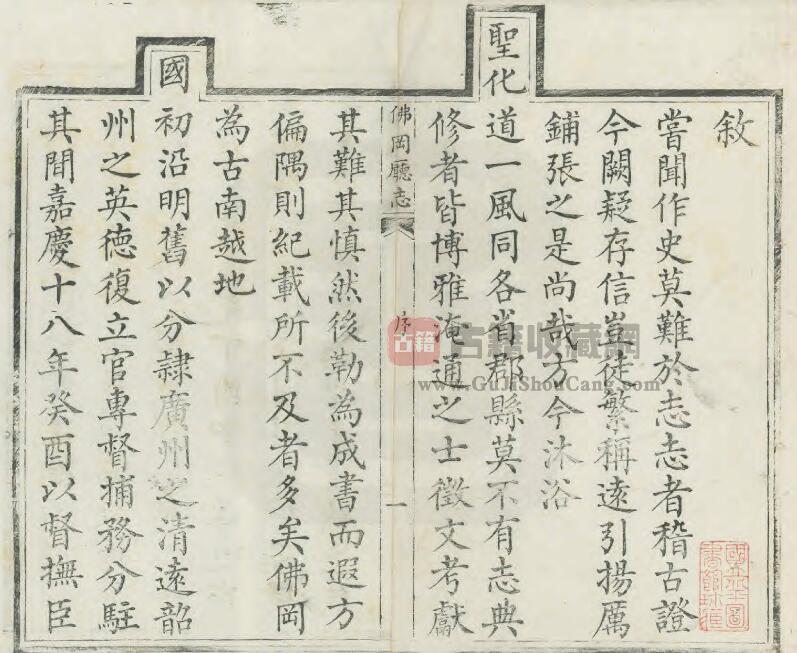 敘
嘗聞作史莫難於志志者稽古證
今闕疑存信豈徒繁稱遠引揚厲
鋪張之是尚哉方今沐浴
聖化
道一風同各省郡縣莫不有志典
修者皆博雅淹通之士徵文考獻
佛岡廳志
序
一
其難其慎然後勒為成書而遐方
偏隅則紀載所不及者多矣佛岡
為古南越地
國
初沿明舊以分隸廣州之清遠韶
州之英德復立官專督捕務分駐
其間嘉慶十八年癸酉以督撫臣
古籍
古籍收藏網
www.GuJiShouCang.com